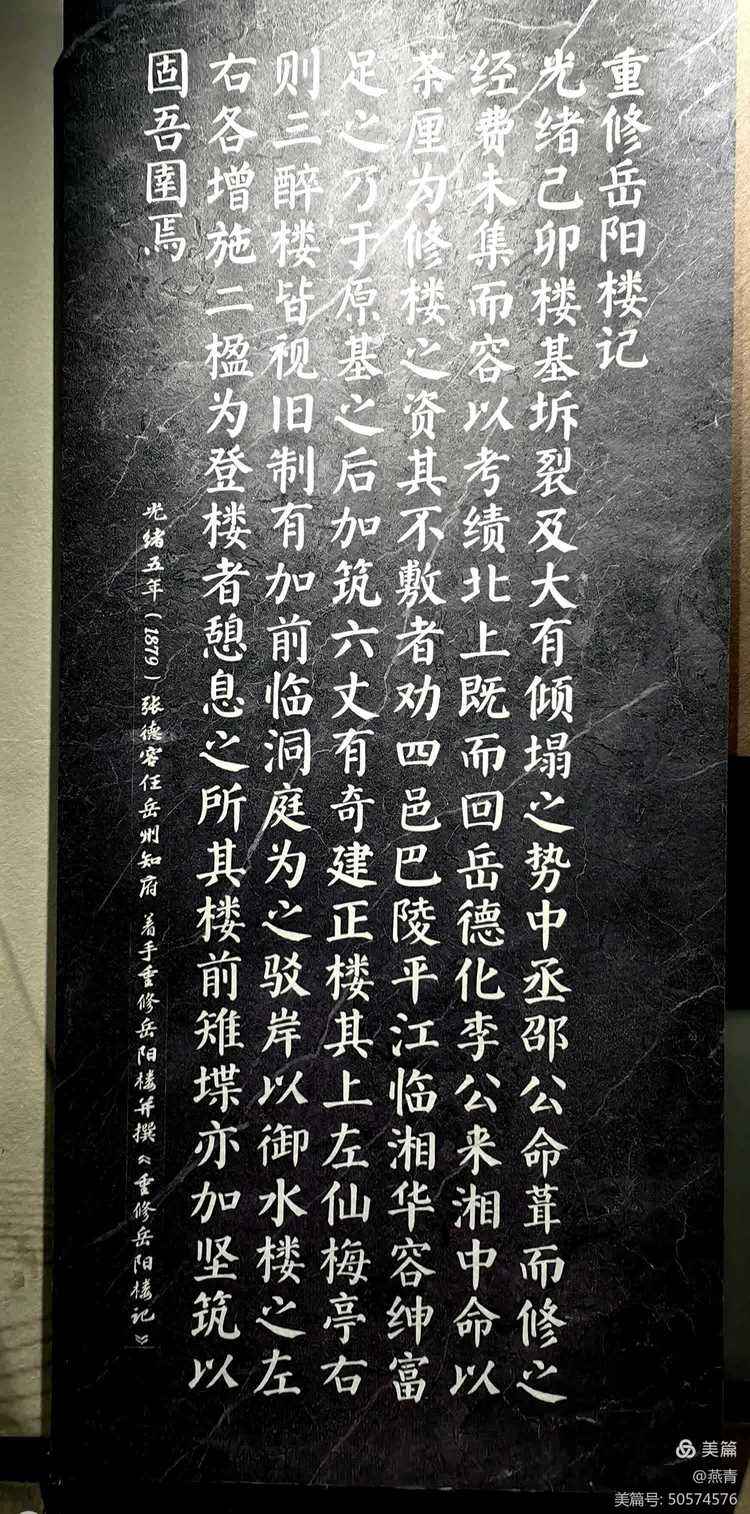 重修岳阳楼记
光绪己卯楼基坼裂及大有倾塌之势中丞邵公命葺而修之
经费未集而容以考绩北上既而回岳德化李公来湘中命以
茶厘为修楼之资其不敷者劝四邑巴陵平江临湘华容绅富
足之乃于原基之后加筑六丈有奇建正楼其上左仙梅亭右
则三醉楼皆视旧制有加前临洞庭为之驳岸以御水楼之左
右各增施二楹为登楼者憩息之所其楼前雉堞亦加坚筑以
固吾圉焉
光绪五年(1879)张德容任岳州知府 着手重修岳阳楼并撰《重修岳阳楼记》
美篇
@燕青
美篇号: 50574576